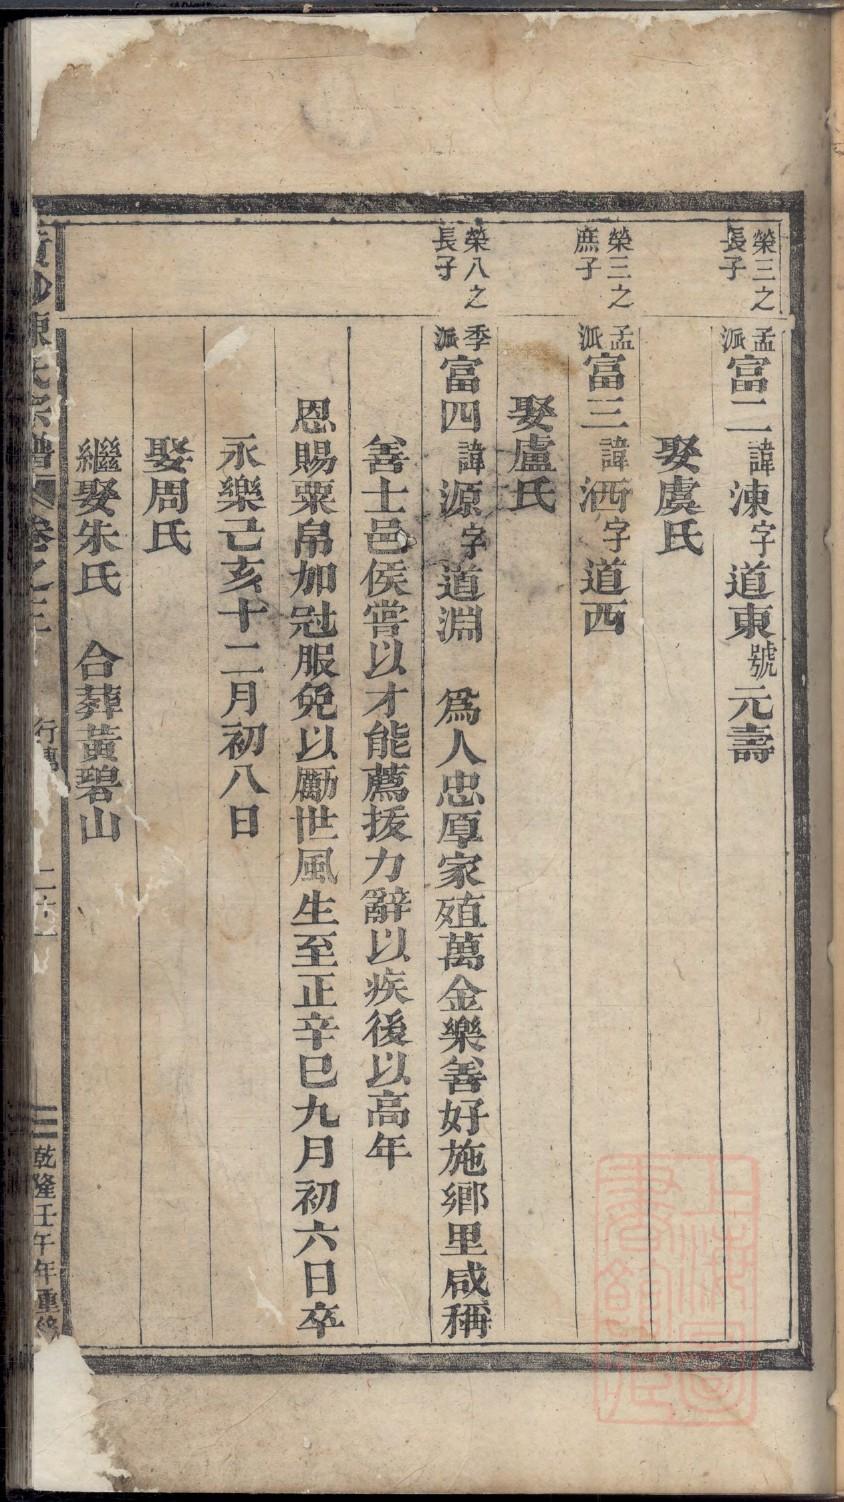 榮三之長子
孟派富二諱涷字道東號元壽
娶虞氏
榮三之庶子
孟派富三諱洒字道西
娶盧氏
榮八之長子
季派富四諱源字道淵 爲人忠厚家殖萬金樂善好施鄉里咸稱
善士邑侯嘗以才能薦拔力辭以疾後以高年
恩賜粟帛加冠服免以勵世風生至正辛巳九月初六日卒
永樂己亥十二月初八日
娶周氏
繼娶朱氏 合葬黃碧山
陳氏宗譜 卷之三 行傳 二十一 乾隆壬午年重修
上海圖書館藏